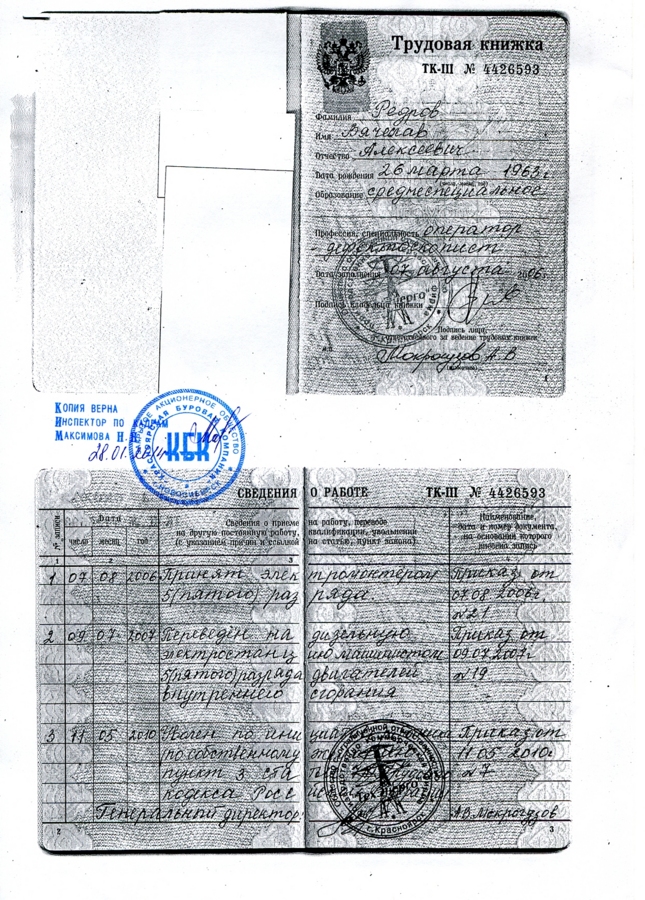 Трудовая книжка
ТК-III № 4426593
Фамилия Редров
Имя Вячеслав
Отчество Алексеевич
Дата рождения 26 марта 1963 г
(число, месяц, год)
Образование среднеспециальное
Профессия, специальность оператор
- дефектоскопист
Дата заполнения 07 августа 2006 г.
Подпись владельца книжки
Подпись лица,
ответственного за ведение трудовых книжек
Мокроусов А В
1
Копия верна
Инспектор по кадрам
Максимова Н.
28.01.2014
АКЦИОНЕРНОЕ ОБЩЕСТВО
КРАСНОЯРСКАЯ БУРОВАЯ КОМПАНИЯ
КБК
СВЕДЕНИЯ О РАБОТЕ ТК-III № 4426593
№ записи
Дата
число месяц год
Сведения о приеме на работу, переводе
на другую постоянную работу, квалификации, увольнении
(с указанием причин и ссылкой на статью, пункт закона)
Наименование,
дата и номер документа,
на основании которого
внесена запись
1 2 3
1 07 08 2006 Принят электромонтером Приказ от
5(пятого) разряда 07.08 2006г
№21
2 09 07 2007 Переведён на дизельную Приказ от
электростанцию машинистом 09.07.2007г
5(пятого) разряда двигателей №19
внутреннего сгорания
3 11 05 2010 Уволен по инициативе Приказ от
(по собственному 11 05 2010г
пункт 3 ста №7
кодекса Росс
Генеральный директор
г. Красноярск
2 3